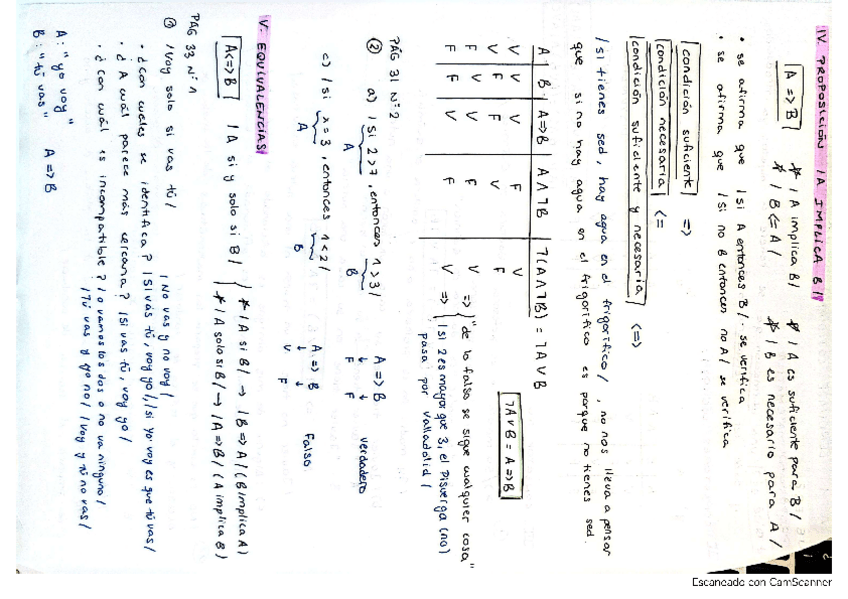 IV. PROPOSICIÓN /A IMPLICA B/
A => B
* /A implica B/
* /A es suficiente para B/
* /B <= A/
* /B es necesario para A/
• se afirma que /si A entonces B/ · se verifica
• se afirma que /si no B entonces no A/ se verifica
/condición suficiente/ =>
/condición necesaria/ <=
/condición suficiente y necesaria/ <=>
/si tienes sed, hay agua en el frigorífico/, no nos lleva a pensar
que si no hay agua en el frigorífico es porque no tienes sed.
A | B | A=>B | A∧¬B | ¬(A∧¬B) = ¬A∨B
V V V F V
V F F V F
F V V F V
F F V F V
¬A∨B = A=>B
=> "de lo falso se sigue cualquier cosa"
=> /si 2 es mayor que 3, el Pisuerga (no)
pasa por Valladolid/
PÁG 31 Nº 2
② a) /si 2>7, entonces 1>3/
A B
A => B
F F
verdadero
c) /si x=3, entonces 1<2/
A B
A => B
V F
Falso
V. EQUIVALENCIAS/
A<=>B /A si y solo si B/
* /A si B/ → /B=>A/ (B implica A)
* /A solo si B/ → /A=>B/ (A implica B)
PÁG 33 Nº 1
① /Voy solo si vas tú/
/No vas y no voy/
• ¿Con cuáles se identifica? /Si vas tú, voy yo/, /si yo voy es que tú vas/
• ¿A cuál parece más cercana? /Si vas tú, voy yo/
• ¿Con cuál es incompatible? /o vamos los dos o no va ninguno/
/Tú vas y yo no/ /voy y tú no vas/
A: "yo voy"
B: "tú vas"
A => B
Escaneado con CamScanner